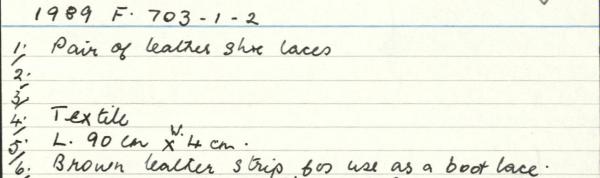 1989 F. 703-1-2
1. Pair of leather shoe laces
2.
3.
4. Textile
5. L. 90 cm x W. 4 cm.
6. Brown leather strip for use as a boot lace.